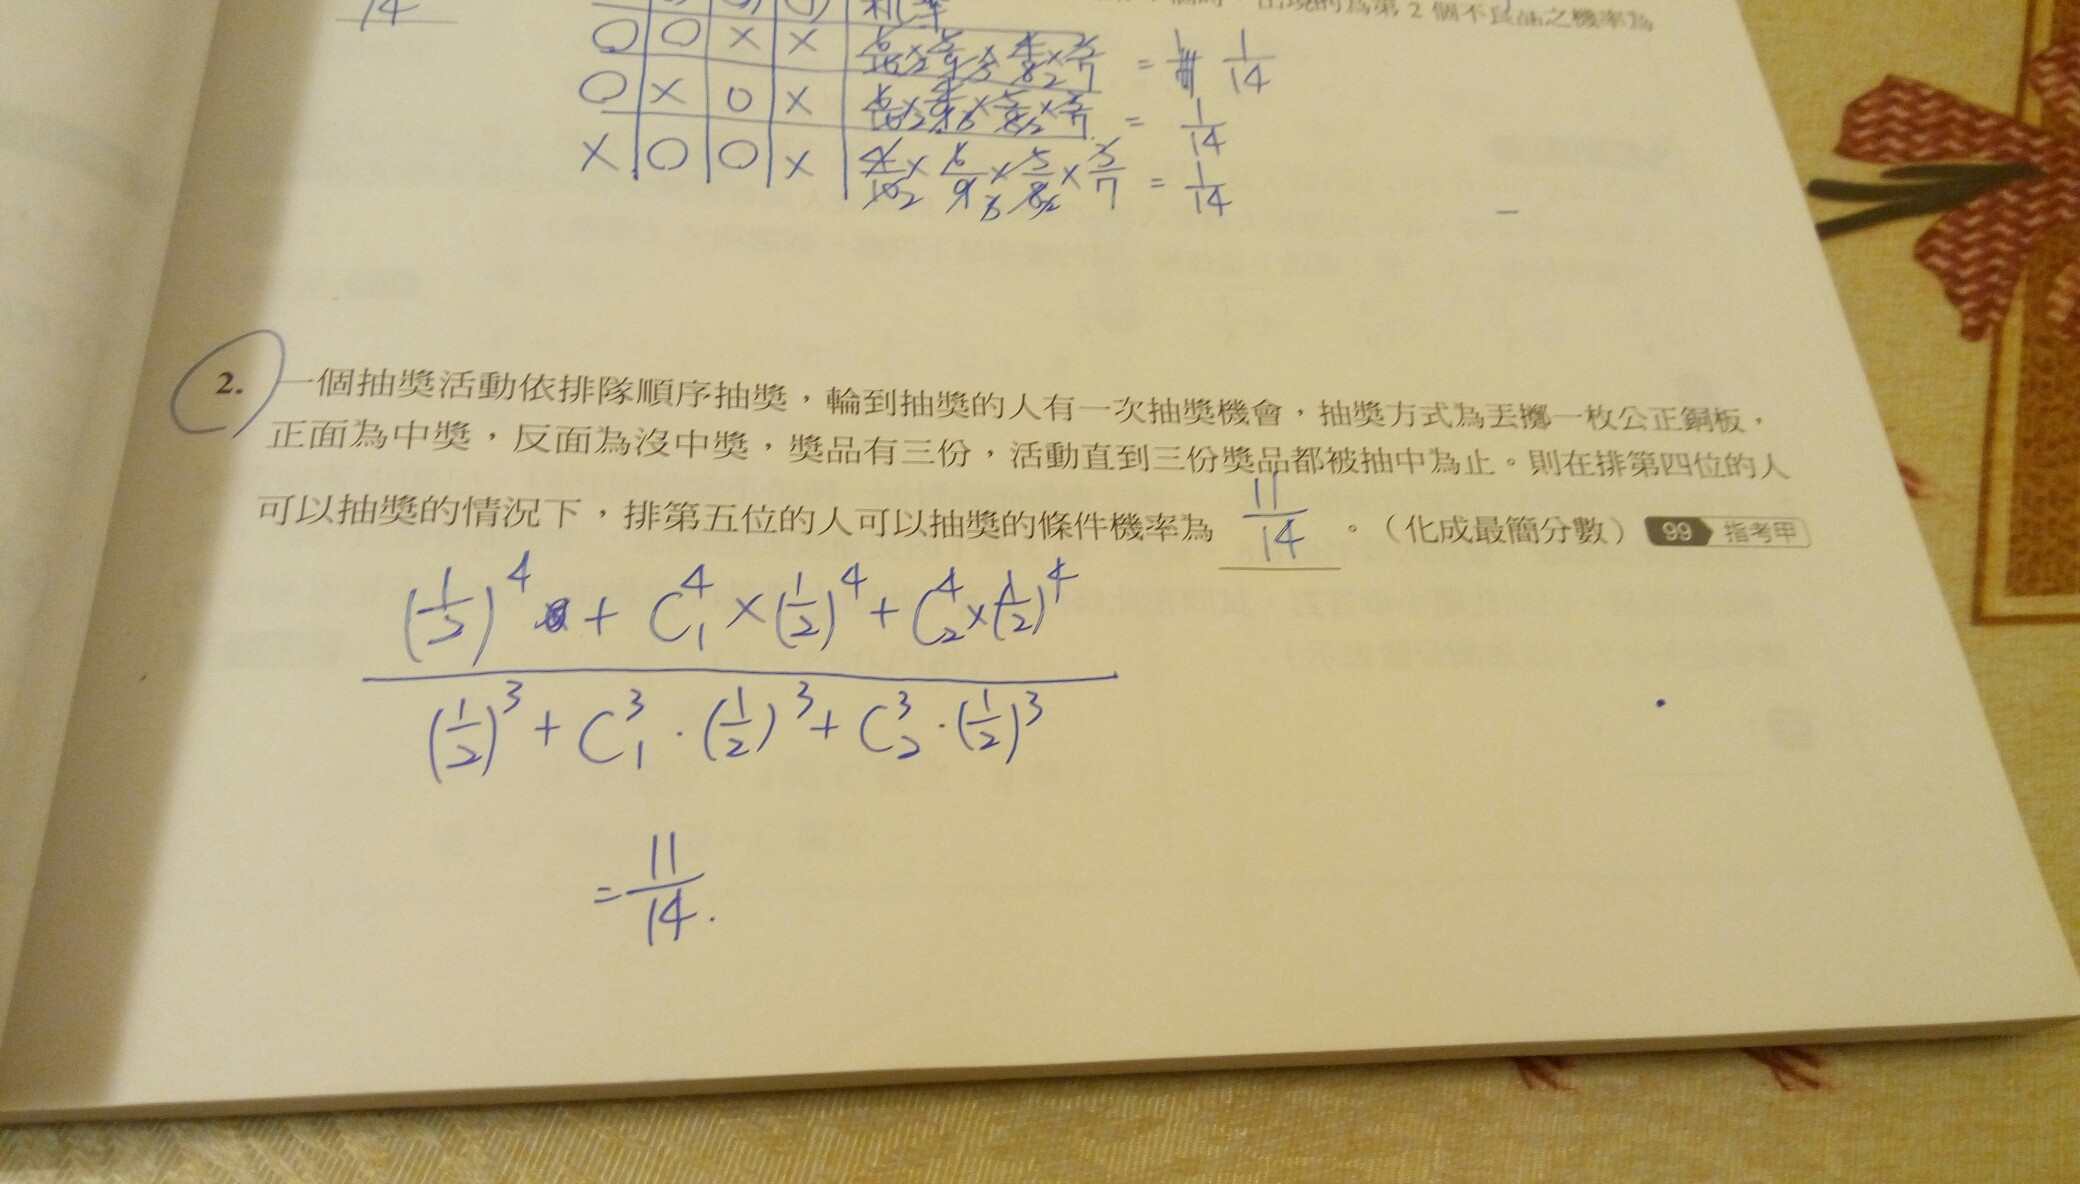 14
機率
第 2 個不良品之機率為
O O × × 6/10 × 5/9 × 4/8 × 3/7 = 1/14
O × O × 6/10 × 4/9 × 5/8 × 3/7 = 1/14
× O O × 4/10 × 6/9 × 5/8 × 3/7 = 1/14
2. 一個抽獎活動依排隊順序抽獎，輪到抽獎的人有一次抽獎機會，抽獎方式為丟擲一枚公正銅板，
正面為中獎，反面為沒中獎，獎品有三份，活動直到三份獎品都被抽中為止。則在排第四位的人
可以抽獎的情況下，排第五位的人可以抽獎的條件機率為 11/14 。（化成最簡分數） 99 指考甲
(1/2)^4 + C^4_1 × (1/2)^4 + C^4_2 × (1/2)^4
(1/2)^3 + C^3_1 · (1/2)^3 + C^3_2 · (1/2)^3
= 11/14.